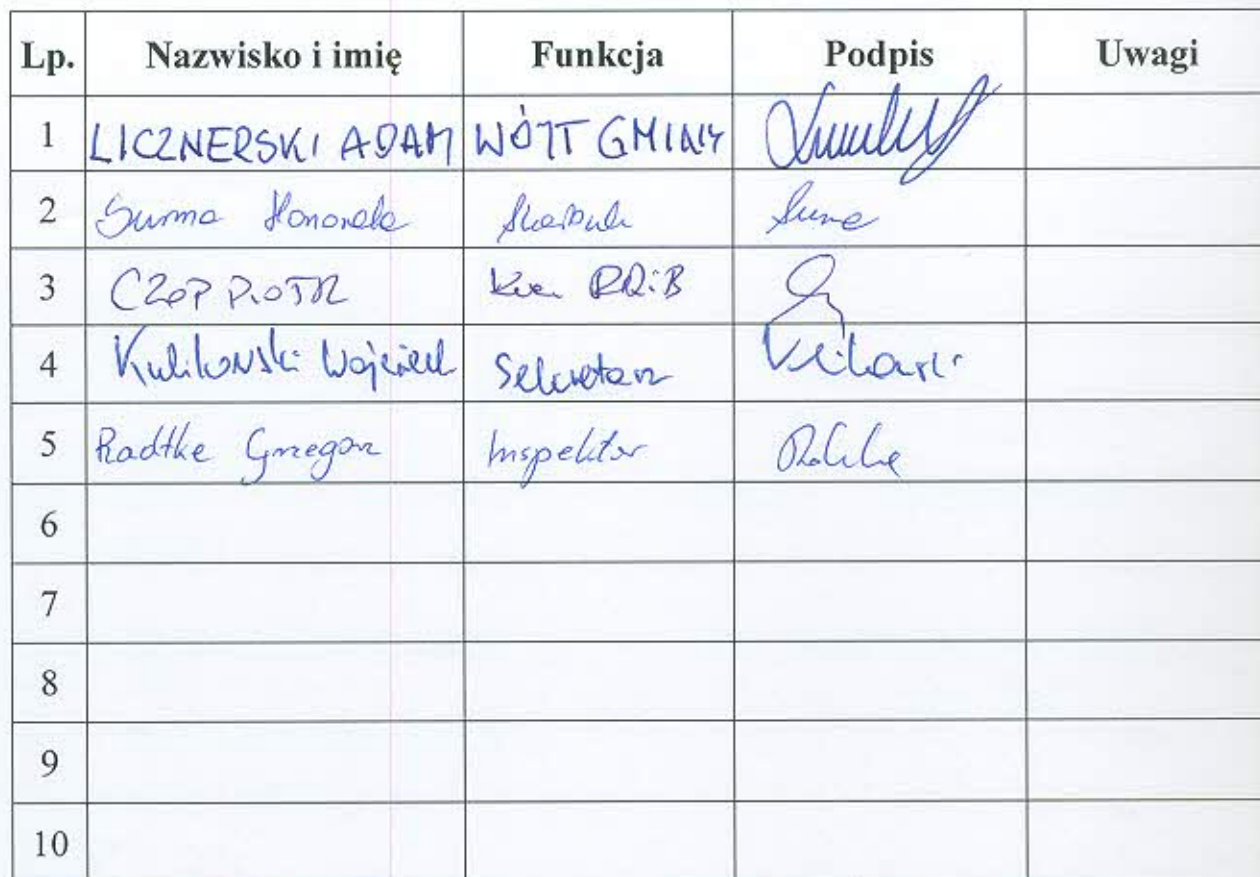 Lp. Nazwisko i imię Funkcja Podpis Uwagi
1 LICZNERSKI ADAM WÓJT GMINY
2 Surma Honorata Skarbnik
3 CZOP PIOTR RRiB
4 Kulikowski Wojciech Sekretarz
5 Radtke Grzegorz Inspektor Radtke
6
7
8
9
10